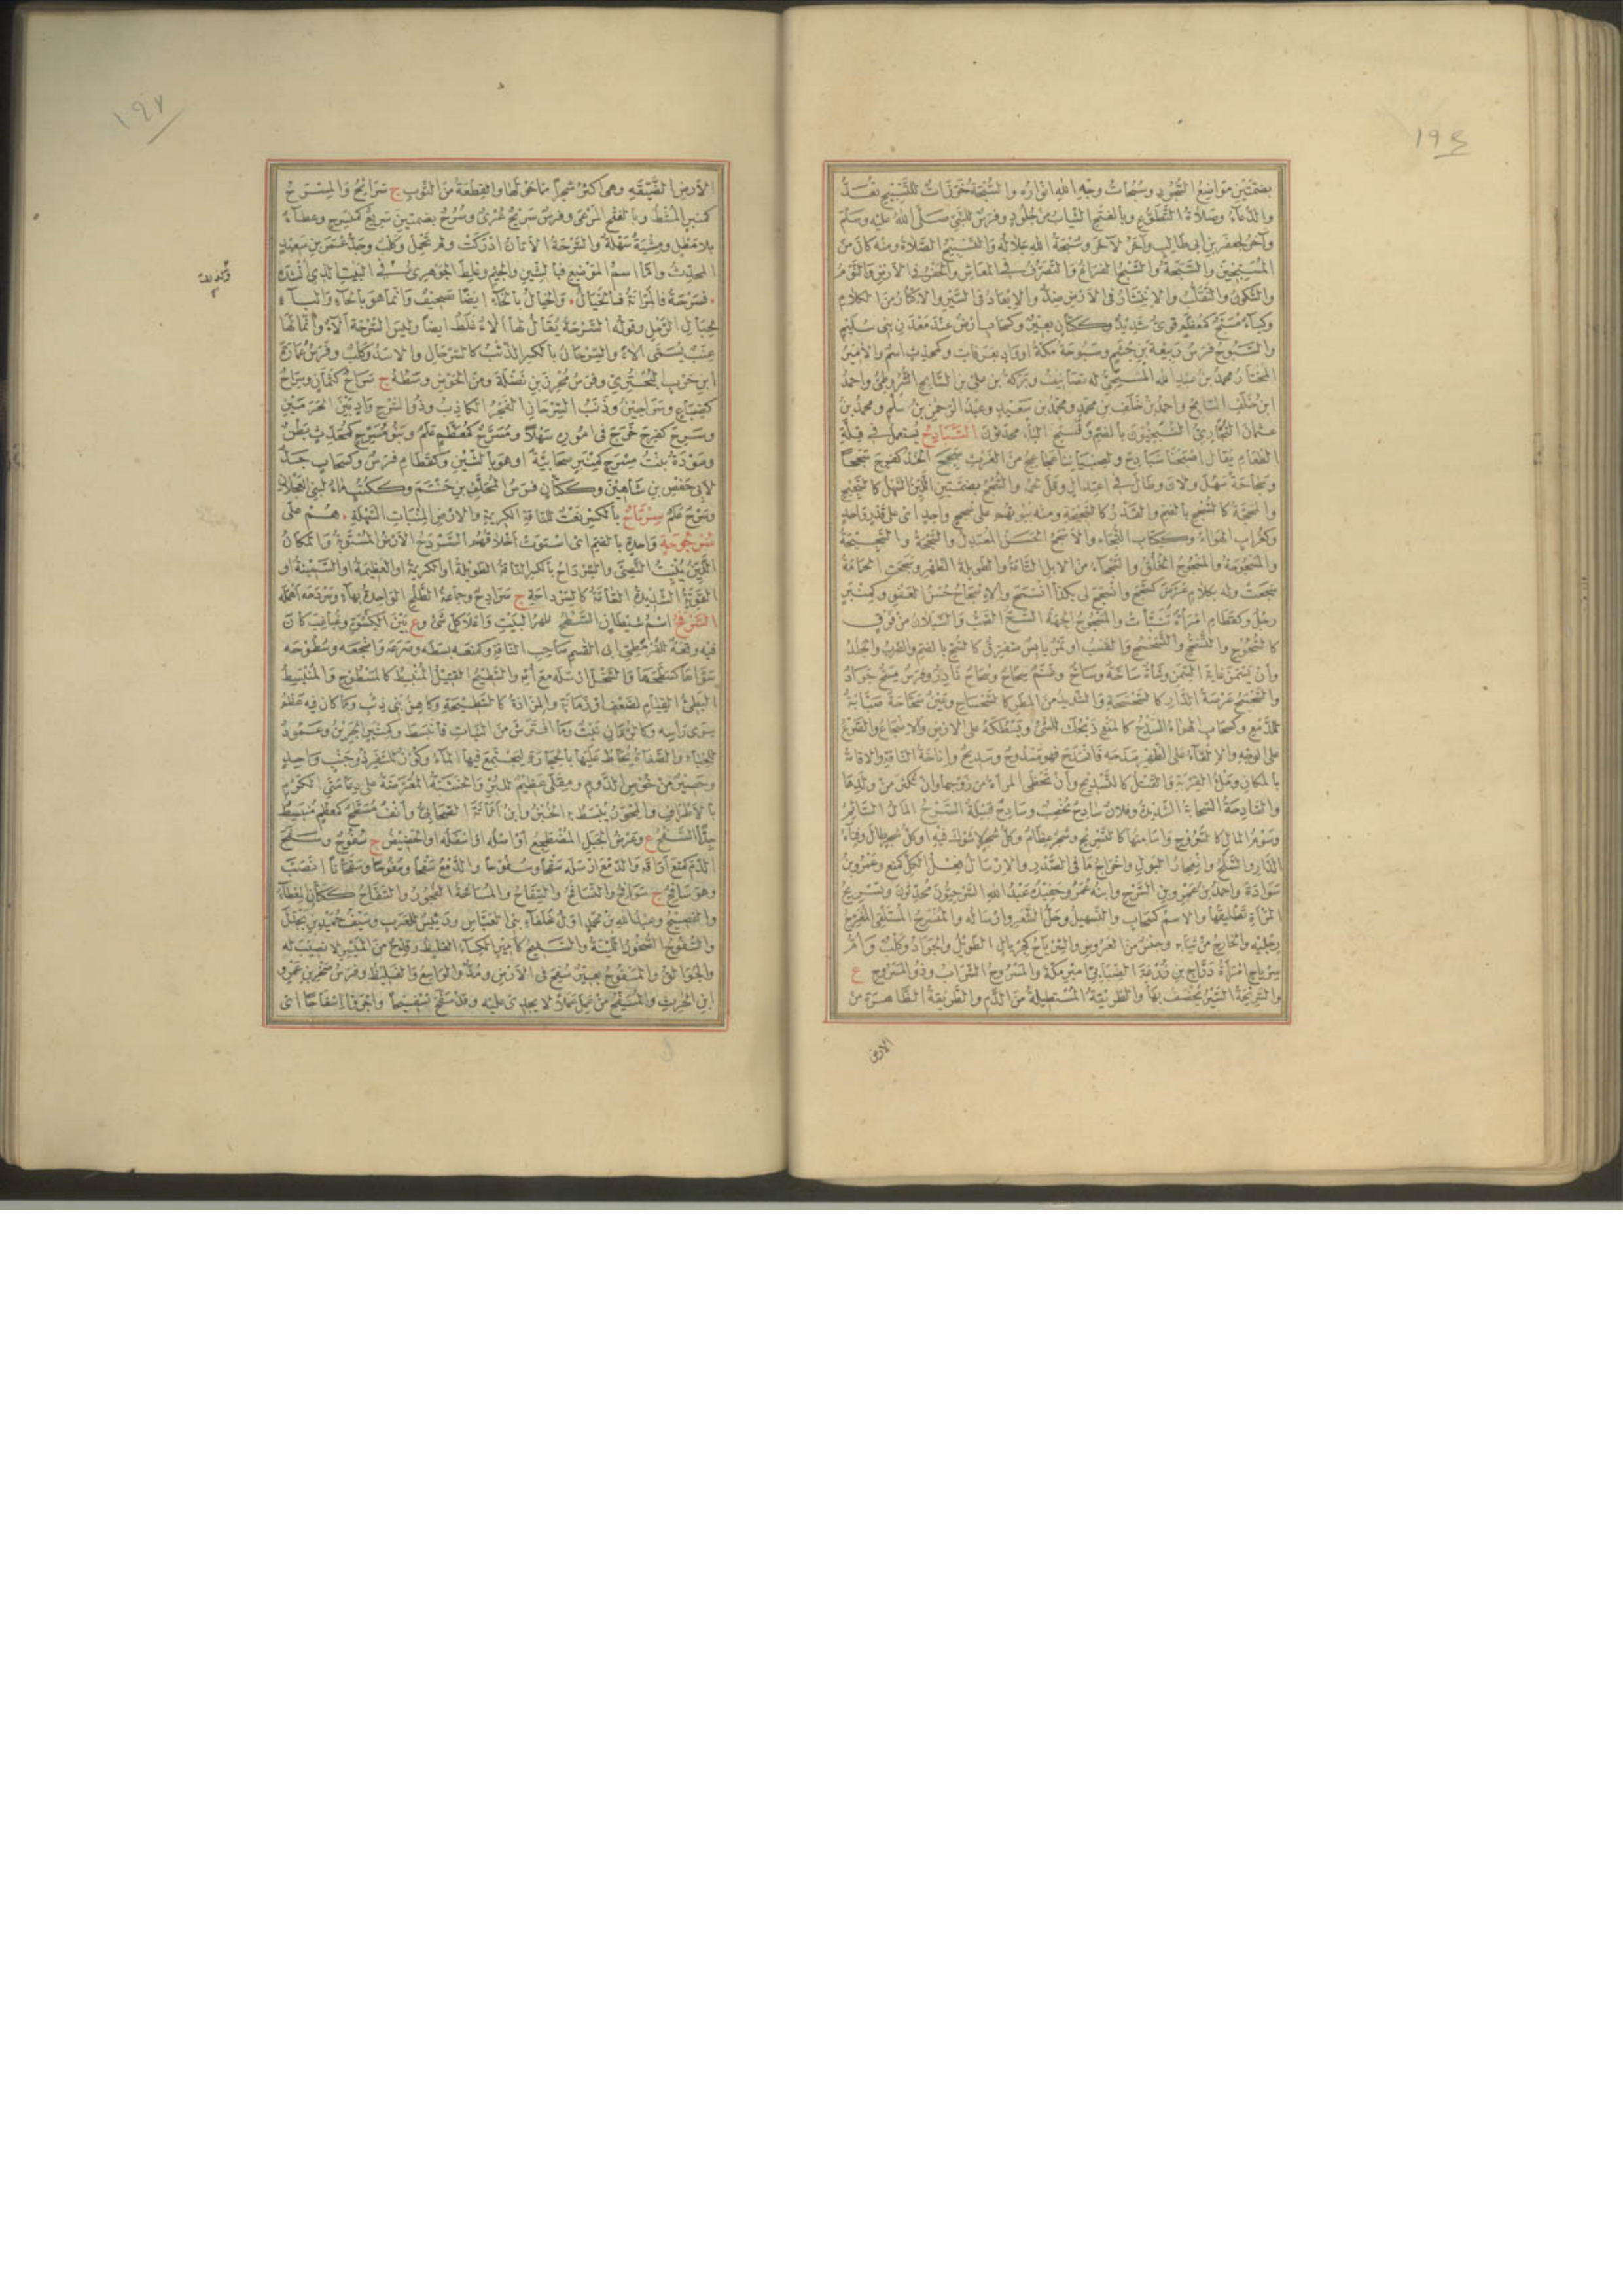 ١٩٤
بضمتين مواضع السجود وسبحات وجه الله انواره والسبحة خرزات للتسبيح تعد
والدعاء وصلاة التطوع وبالفتح الثياب من جلود وفرس للنبي صلى الله عليه وسلم
وآخر لجعفر بن ابي طالب وآخر لآخر وسبحة الله جلاله والتسبيح الصلاة ومنه كان من
المسبحين والسبح الفراغ والتصرف في المعاش والحفر في الارض والنوم
والسكون والتقلب والانتشار في الارض ضد والابعاد في السير والاكثار من الكلام
وكساء مسبح كمعظم قوي شديد وككتان بعير وكسحاب ارض عند معدن بني سليم
والسبوح فرس ربيعة بن جشم وسبوحة مكة او واد بعرفات وكمحدث اسم والامير
المختار محمد بن عبيد الله المسبحي له تصانيف وبركة بن علي بن السابح الشروطي واحمد
ابن خلف السابح واحمد بن خلف بن محمد ومحمد بن سعيد وعبد الرحمن بن سلم ومحمد بن
عثمان البخاري السبحيون بالضم وفتح الباء محدثون السبادح يستعمل في قلة
الطعام يقال اصبحنا سبادح ولصبياننا عجاعج من الغرث سجح الخد كفرح سجحا
وسجاحة سهل ولان وطال في اعتدال وقل لحمه والسجح بضمتين اللين السهل كالسجيح
والمحجة كالسجح بالضم والقدر كالسجيحة ومنه بيوتهم على سجح واحد اي على قدر واحد
وكغراب الهواء وككتاب التجاه والاسجح الحسن المعتدل والسجحة والسجيحة
والمسجوحة والمسجوح الخلق والسجحاء من الابل التامة والطويلة الظهر وسجحت الحمامة
سجعت وله بكلام عرض كسجح وانسجح لي بكذا انسمح والاسجاح حسن العفو وكمنبر
رجل وكقطام امرأة تنبأت والسجوح الجهة السح الصب والسيلان من فوق
كالسحوح والتسحسح والتسحح والضرب او تمر يابس متفرق كالسح بالضم والضرب والجلد
وان يسمن غاية السمن وشاة ساحة وساح وغنم سحاح وسحاح نادر وفرس مسح جواد
والسحسح عرصة الدار كالسحسحة والشديد من المطر كالسحساح وعين سحاحة صبابة
للدمع وكسحاب الهواء السدح كالمنع ذبحك الشيء وبسطكه على الارض والاضجاع والصرع
على الوجه والالقاء على الظهر سدحه فانسدح فهو مسدوح وسديح واناخة الناقة والاقامة
بالمكان وملء القربة والقتل كالتسديح وان تحظى المرأة من زوجها وان تكثر من ولدها
والسادحة السحابة الشديدة وفلان سادح مخصب وسادح قبيلة السرح المال السائم
وسوم المال كالسروح واسامتها كالتسريح وشجر عظام وكل شجر لا شوك فيه او كل شجر طال وفناء
الدار والسلح وانفجار البول واخراج ما في الصدر والارسال فعل الكل كمنع وعمرو بن
سوادة واحمد بن عمرو بن السرح وابنه عمر وحفيده عبد الله السرحيون محدثون وتسريح
المرأة تطليقها والاسم كسحاب والتسهيل وحل الشعر وارساله والمنسرح المستلقي المفرج
رجليه والخارج من ثيابه وجنس من العروض والسرياح كجريال الطويل والجراد وكلب وام
سرياح امرأة دراج بن زرعة الضبابي امير مكة والمسروح الشراب وذو المسروح ع
والسريحة السير يخصف بها والطريقة المستطيلة من الدم والطريقة الظاهرة من
الارض
١٩٧
الارض الضيقة وهي اكثر شجرا مما حولها والقطعة من الثوب ج سرائح والمسرح
كمنبر المشط وبالفتح المرعى وفرس سريح عري وسرح بضمتين سريع كمنسرح وعطاء
بلا مطل ومشية سهلة والسرحة الاتان ادركت ولم تحمل وكلب وجد عمر بن سعيد
المحدث واما اسم الموضع فبالشين والجيم وغلط الجوهري في البيت الذي انشده
فسرحة فالمرانة فالخيال والخيال بالخاء ايضا تصحيف وانما هو بالحاء والباء
لحبال الرمل وقوله السرحة يقال لها الآء غلط ايضا وليس السرحة الآء وانما لها
عنب يسمى الآء والسرحان بالكسر الذئب كالسرحال والاسد وكلب وفرس عمارة
ابن حرب البحتري وفرس محرز بن نضلة ومن الحوض وسطه ج سراح كثمان وسراح
كضباع وسراحين وذنب السرحان الفجر الكاذب وذو السرح واد بين الحرمين
وسرح كفرح خرج في اموره سهلا ومسرح كمعظم علم وبنو مسرح كمحدث بطن
وسودة بنت مسرح كمنبر صحابية او هو بالشين وكقطام فرس وكسحاب جد
لابي حفص بن شاهين وككتان فرس المحلق بن حنتم وككتب ماء لبني العجلان
وسرح علم سرتاح بالكسر نعت للناقة الكريمة والارض المنبات السهلة هم على
سرجوحة واحدة بالضم اي استوت اخلاقهم السردح الارض المستوية والمكان
اللين ينبت النصي والسرداح بالكسر الناقة الطويلة او الكريمة او العظيمة او السمينة او
القوية الشديدة التامة كالسرداحة ج سرادح وجماعة الطلح الواحدة بهاء وسردحه اهمله
السرفح اسم شيطان السطح ظهر البيت واعلى كل شيء وع بين الكسوة وغباغب كان
فيه وقعة للقرمطي ابي القاسم صاحب الناقة وكمنعه بسطه وصرعه واضجعه وسطوحه
سواها كسطحها والسخل ارسله مع امه والسطيح القتيل المنبسط كالمسطوح والمنبسط
البطيء القيام لضعف او زمانة والمزادة كالسطيحة وكاهن بني ذئب وما كان فيه عظم
سوى راسه وكالرمان نبت وما افترش من النبات فانبسط وكمنبر الجرين وعمود
للخباء والصفاة يحاط عليها بالحجارة ليجتمع فيها الماء وكوز للسفر ذو جنب واحد
وحصير من خوص الدوم ومقلى عظيم للبر والخشبة المعرضة على دعامتي الكرم
بالاطر والمحور يبسط به الخبز وابن اثاثة الصحابي وانف مسطح كمعظم منبسط
جدا السفح ع وعرض الجبل المضطجع او اصله او اسفله او الحضيض ج سفوح وسفح
الدم كمنع اراقه والدمع ارسله سفحا وسفوحا والدمع سفحا وسفوحا وسفحانا انصب
وهو سافح ج سوافح والتسافح والسفاح والمسافحة الفجور والسفاح ككتان المعطاء
والفصيح وعبد الله بن محمد اول خلفاء بني العباس ورئيس للعرب وسيف حميد بن بحدل
والسفوح الصخور اللينة والسفيح كامير الكساء الغليظ وقدح من الميسر لا نصيب له
والجوالق والمسفوح بعير سفح في الارض ومد والواسع والغليظ وفرس صخر بن عمرو
ابن الحرث والمسفح من عمل عملا لا يجدي عليه وقد سفح تسفيحا واجروا اسفاحا اي